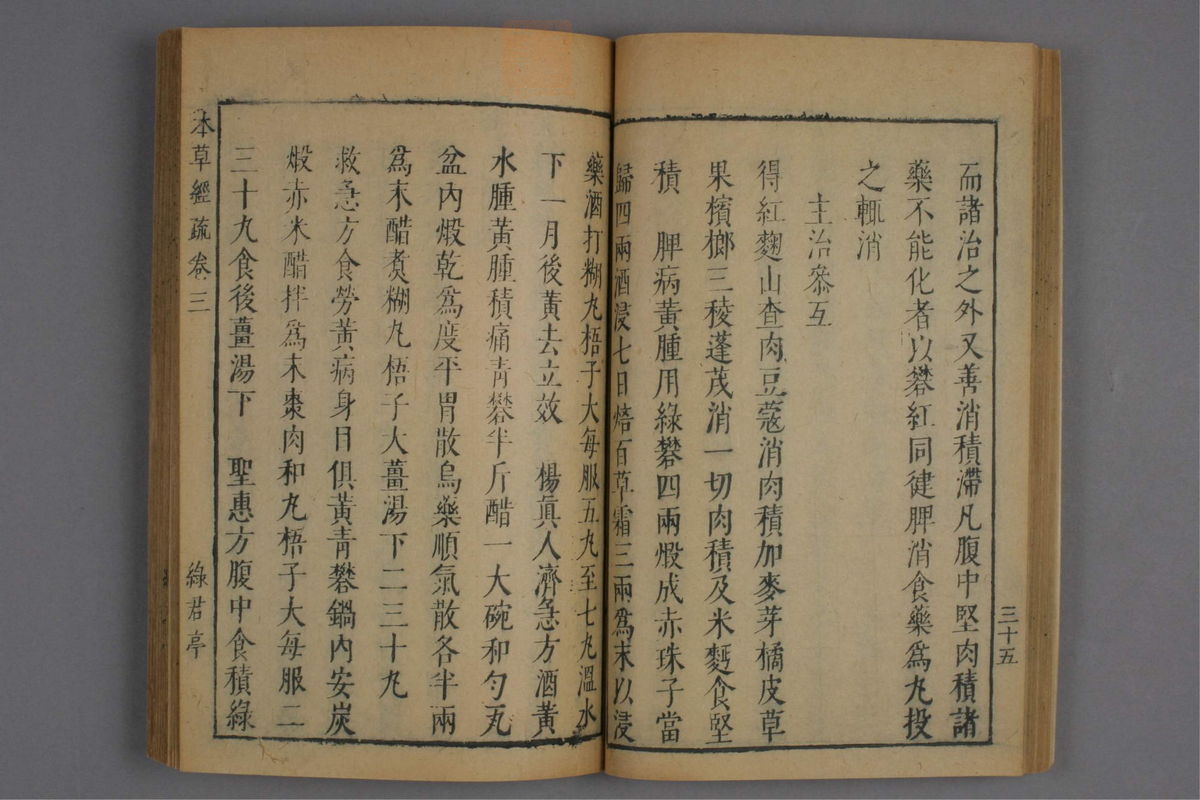 三十五
而諸治之外又善消積滯凡腹中堅肉積諸
藥不能化者以礬紅同健脾消食藥爲丸投
之輒消
主治參互
得紅麴山查肉豆蔻消肉積加麥芽橘皮草
果檳榔三稜蓬茂消一切肉積及米麪食堅
積　脾病黃腫用綠礬四兩煅成赤珠子當
歸四兩酒浸七日焙百草霜三兩爲末以浸
藥酒打糊丸梧子大每服五丸至七丸溫水
下一月後黃去立效　楊眞人濟急方酒黃
水腫黃腫積痛靑礬半斤醋一大碗和勻瓦
盆內煅乾爲度平胃散烏藥順氣散各半兩
爲末醋煮糊丸梧子大薑湯下二三十丸
救急方食勞黃病身目俱黃靑礬鍋內安炭
煅赤米醋拌爲末棗肉和丸梧子大每服二
三十丸食後薑湯下　聖惠方腹中食積綠
本草經疏卷三
綠君亭